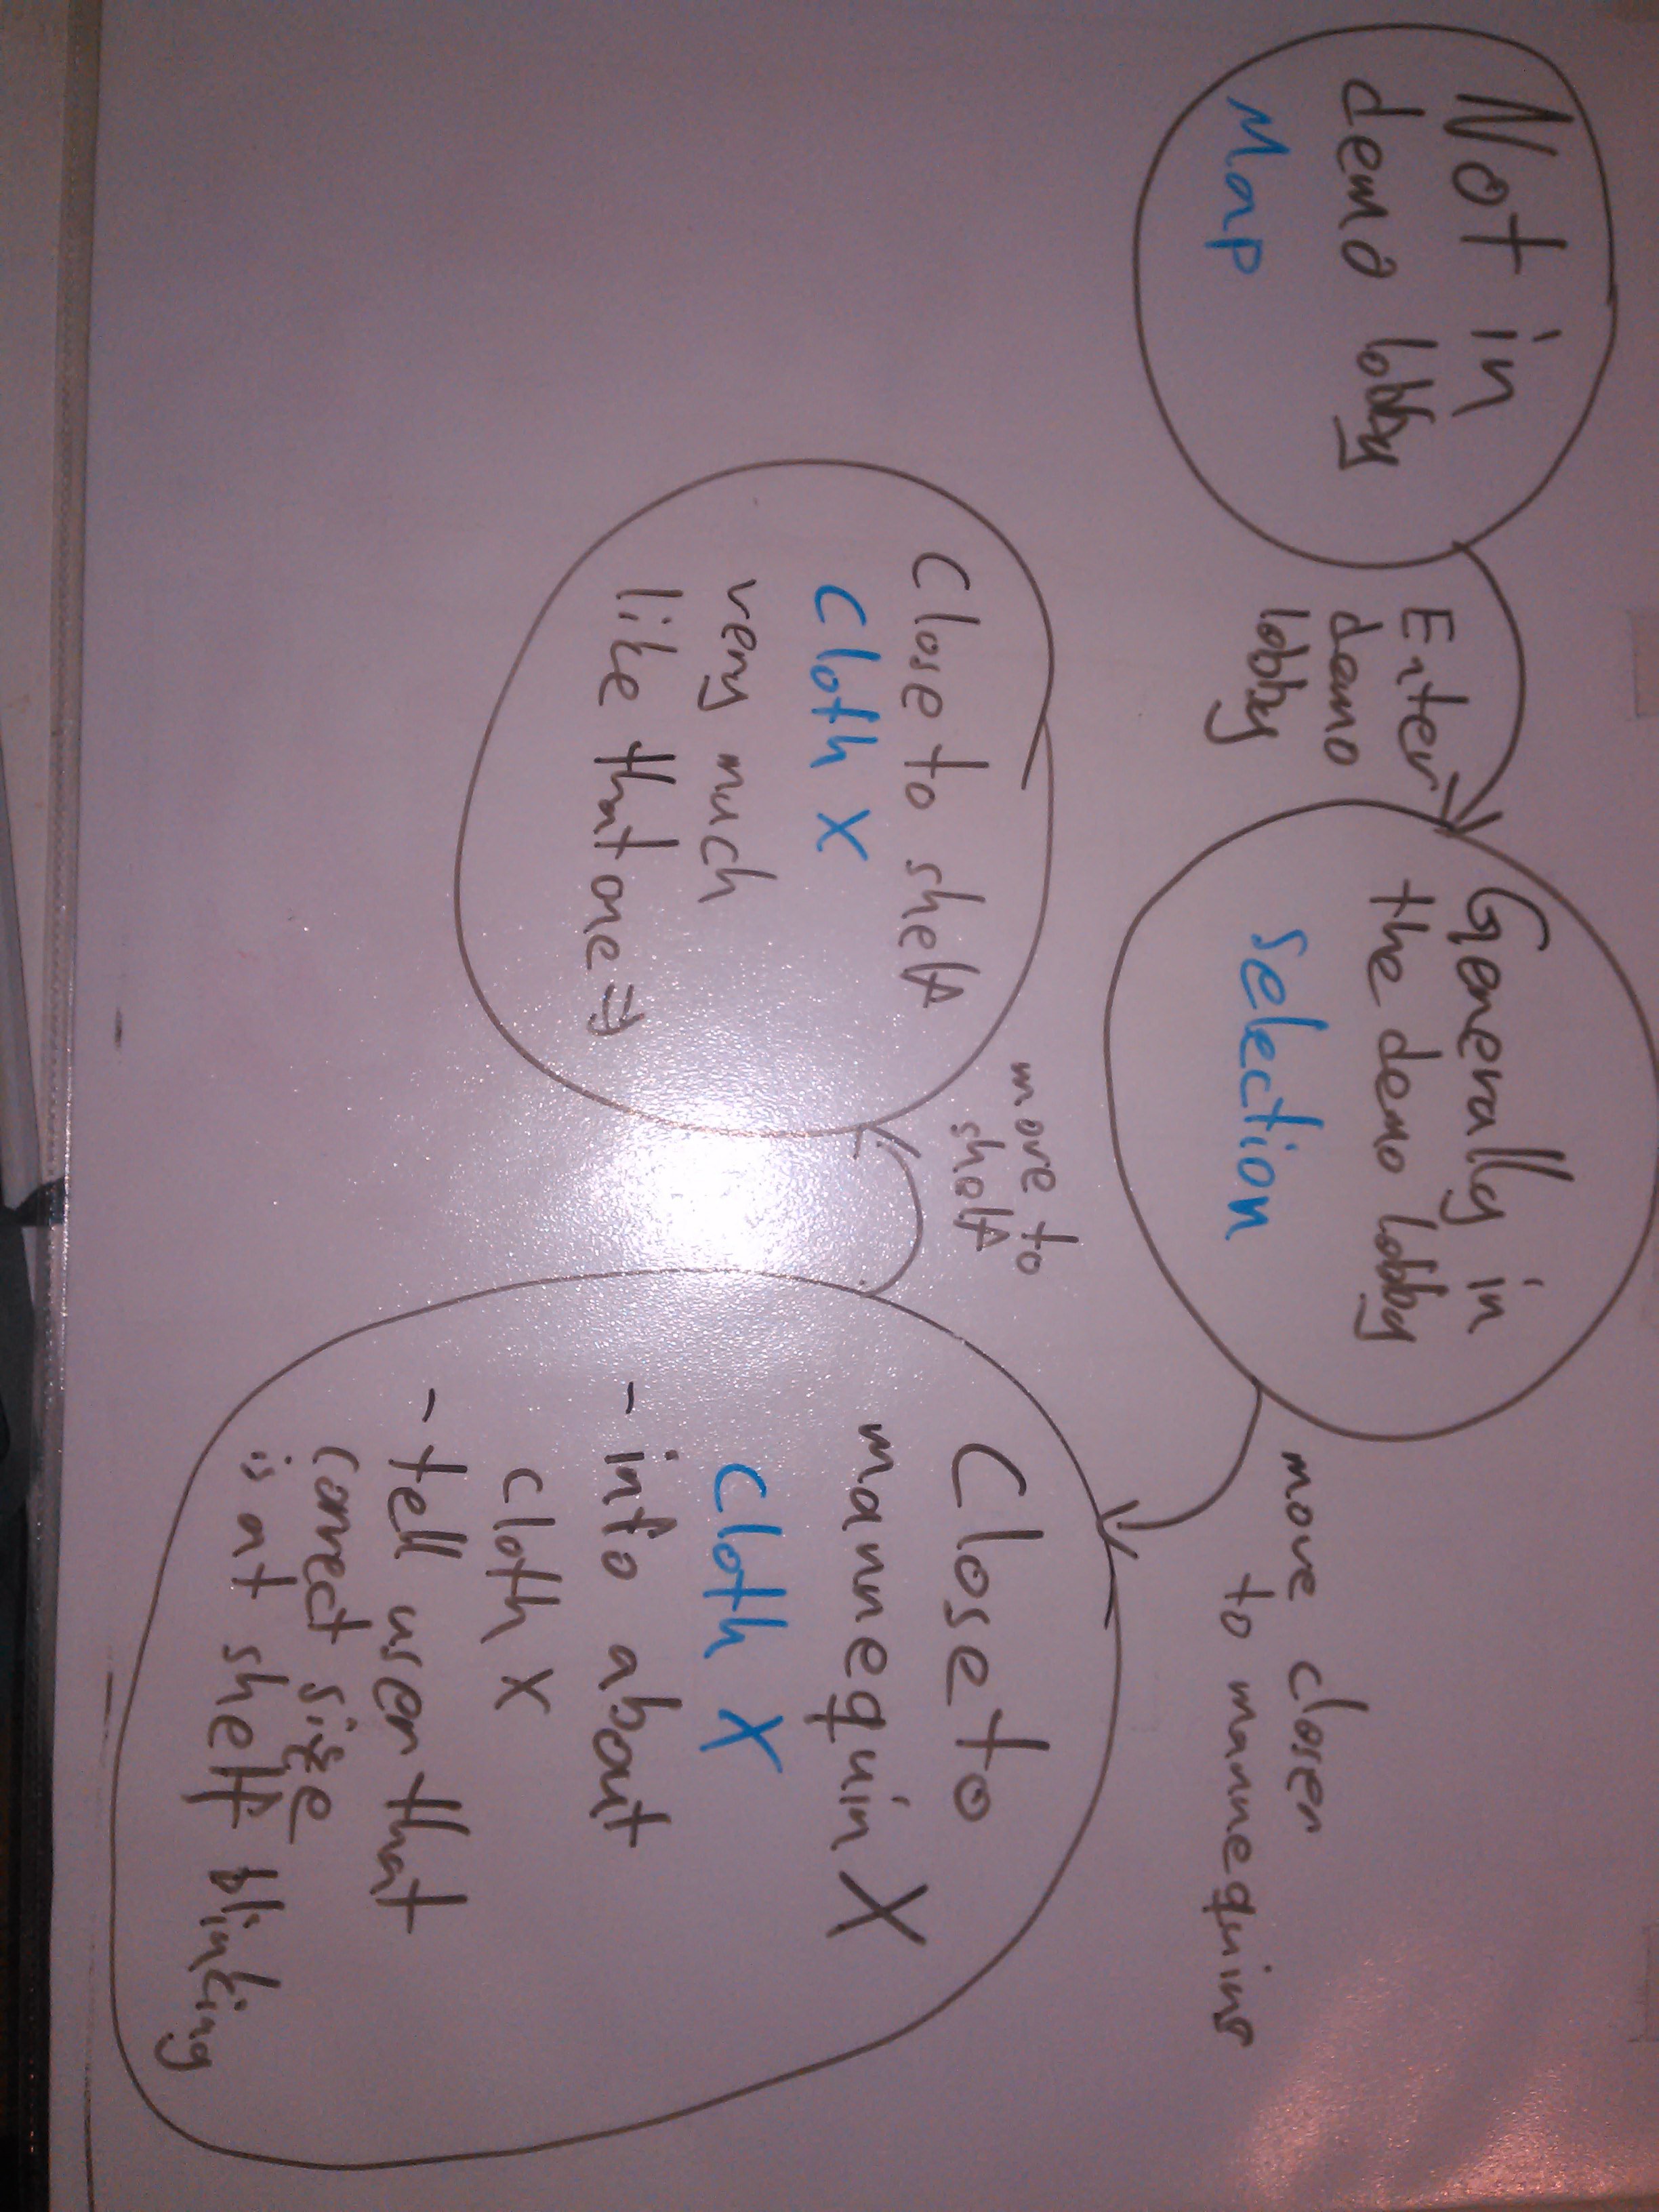 Not in
demo lobby
Map
Enter
demo
lobby
Generally in
the demo lobby
Selection
move closer
to mannequins
Close to
mannequin X
Cloth X
- info about
cloth X
- tell user that
correct size
is at shelf blinking
move to
shelf
Close to shelf
Cloth X
very much
like that one =>